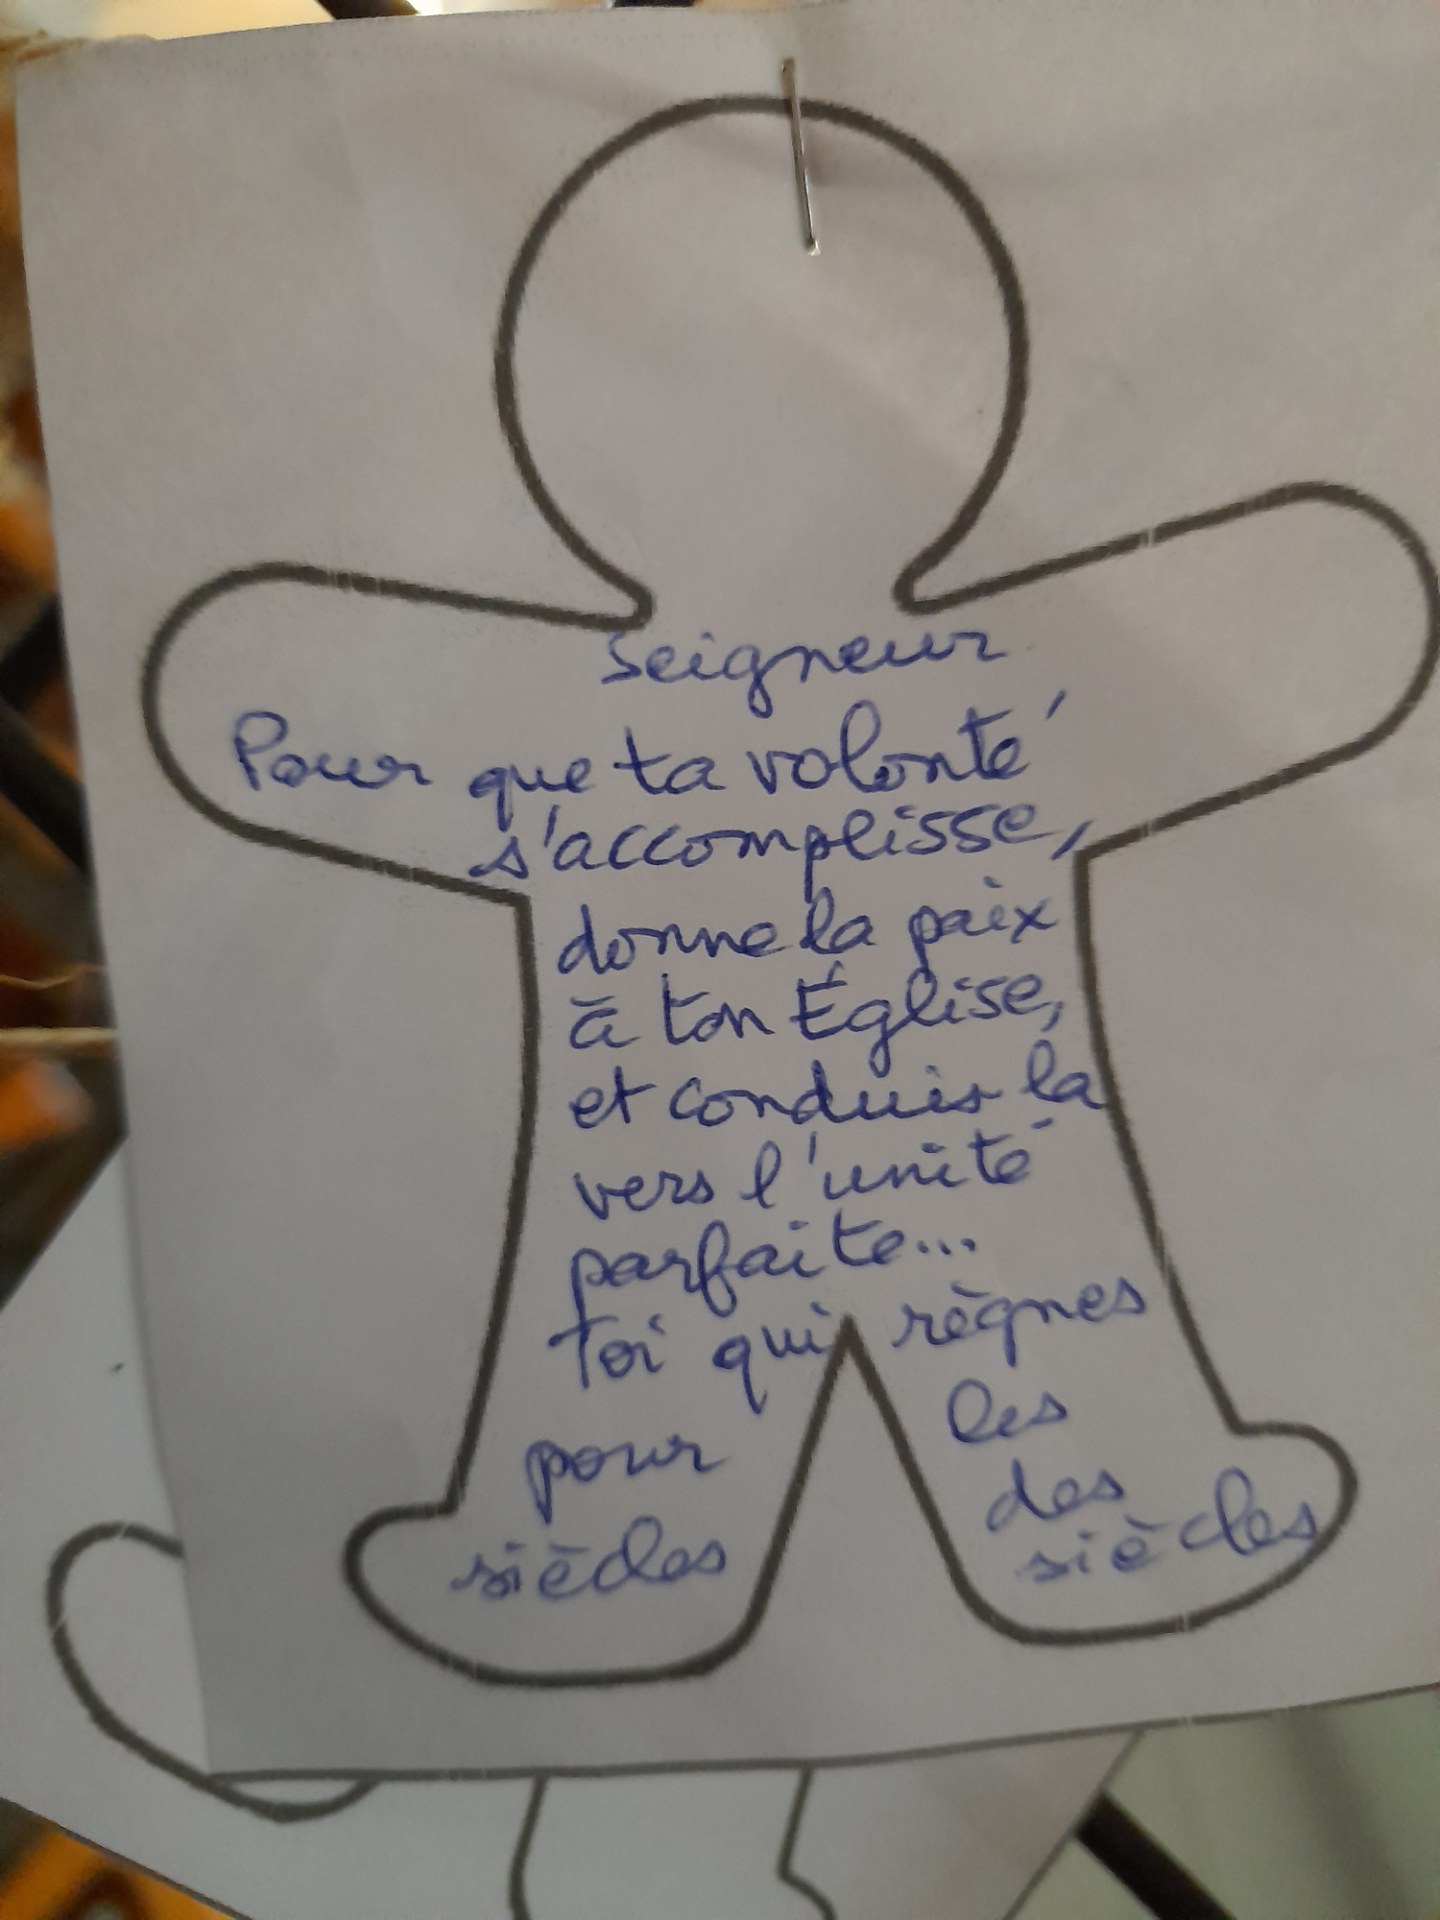 Seigneur
Pour que ta volonté
s'accomplisse,
donne la paix
à ton Église,
et conduis la
vers l'unité
parfaite...
toi qui règnes
pour les
siècles des
siècles